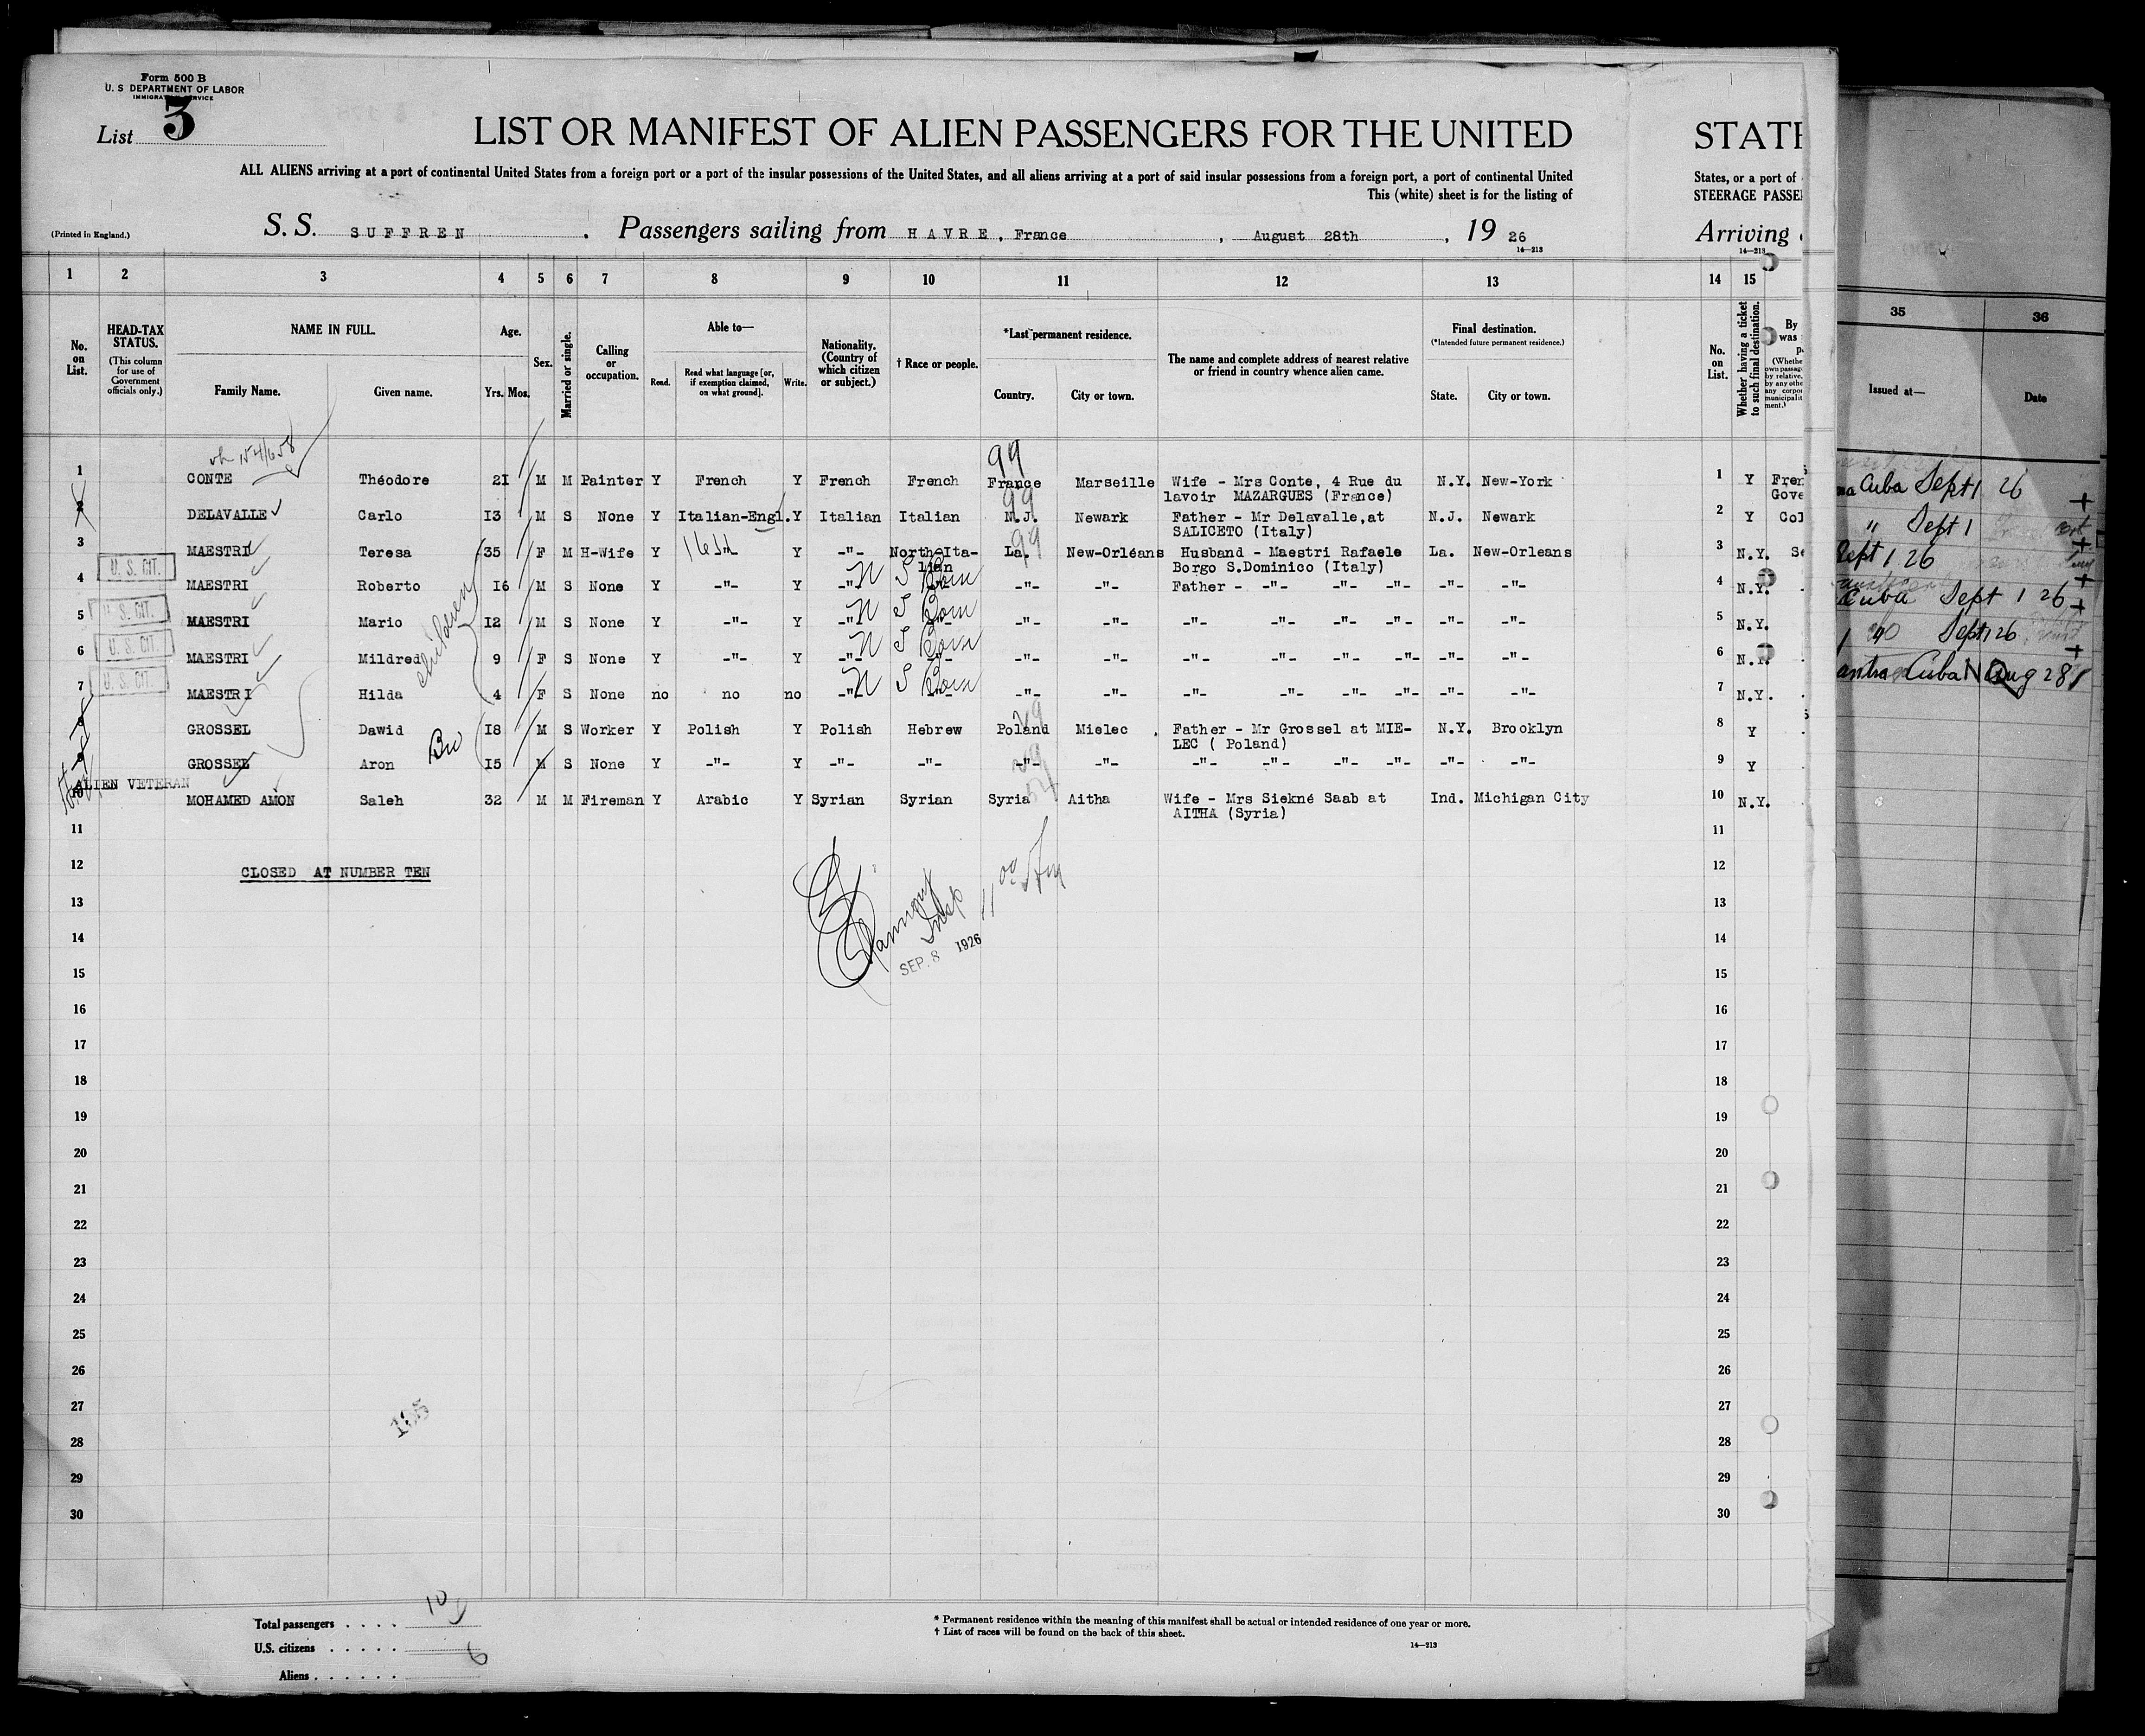 Form 500 B
U. S DEPARTMENT OF LABOR
IMMIGRATION SERVICE
List 3
LIST OR MANIFEST OF ALIEN PASSENGERS FOR THE UNITED
STATE
ALL ALIENS arriving at a port of continental United States from a foreign port or a port of the insular possessions of the United States, and all aliens arriving at a port of said insular possessions from a foreign port, a port of continental United
States, or a port of
This (white) sheet is for the listing of
STEERAGE PASSE
(Printed in England.)
S. S. SUFFREN . Passengers sailing from HAVRE, France , August 28th , 19 26
Arriving
14—213
14—213
1 2 3 4 5 6 7 8 9 10 11 12 13 14 15 35 36
No. on List.
HEAD-TAX STATUS.
(This column for use of Government officials only.)
NAME IN FULL.
Family Name. Given name.
Age.
Yrs. Mos.
Sex.
Married or single.
Calling or occupation.
Able to—
Read. Read what language [or, if exemption claimed, on what ground]. Write.
Nationality. (Country of which citizen or subject.)
† Race or people.
*Last permanent residence.
Country. City or town.
The name and complete address of nearest relative or friend in country whence alien came.
Final destination.
(*Intended future permanent residence.)
State. City or town.
No. on List.
Whether having a ticket to such final destination.
By
was
Issued at—
Date
99
1 CONTE Théodore 21 M M Painter Y French Y French French France Marseille Wife - Mrs Conte, 4 Rue du N.Y. New-York 1 Y Fren
lavoir MAZARGUES (France) Gove
Cuba Sept 1 26
99
2 DELAVALLE Carlo I3 M S None Y Italian-Engl. Y Italian Italian N.J. Newark Father - Mr Delavalle,at N.J. Newark 2 Y Col
SALICETO (Italy)
" Sept 1
99
3 MAESTRI Teresa 35 F M H-Wife Y -"- Y -"- North-Ita- La. New-Orléans Husband - Maestri Rafaele La. New-Orleans 3 N.Y. Se
lian Borgo S.Dominico (Italy)
Sept 1 26
U. S. CIT.
4 MAESTRI Roberto I6 M S None Y -"- Y -"- -"- -"- Father - -"- -"- -"- -"- -"- 4 N.Y.
Cuba Sept 1 26
U. S. CIT.
5 MAESTRI Mario I2 M S None Y -"- Y -"- -"- -"- -"- -"- -"- -"- -"- -"- 5 N.Y.
Sept 1 26
U. S. CIT.
6 MAESTRI Mildred 9 F S None Y -"- Y -"- -"- -"- -"- -"- -"- -"- -"- -"- -"- 6 N.Y.
Cuba Aug 28
U. S. CIT.
7 MAESTRI Hilda 4 F S None no no no -"- -"- -"- -"- -"- -"- -"- -"- -"- 7 N.Y.
children
8 GROSSEL Dawid I8 M S Worker Y Polish Y Polish Hebrew Poland Mielec . Father - Mr Grossel at MIE- N.Y. Brooklyn 8 Y
LEC ( Poland)
9 GROSSEL Aron I5 M S None Y -"- Y -"- -"- -"- -"- -"- -"- -"- -"- -"- -"- 9 Y
ALIEN VETERAN
10 MOHAMED AMON Saleh 32 M M Fireman Y Arabic Y Syrian Syrian Syria Aitha Wife - Mrs Siekné Saab at Ind. Michigan City 10 N.Y.
AITHA (Syria)
11 11
12 CLOSED AT NUMBER TEN 12
13 13
14 14
SEP. 8 1926
15 15
16 16
17 17
18 18
19 19
20 20
21 21
22 22
23 23
24 24
25 25
26 26
27 27
28 28
29 29
30 30
Total passengers . . . . 10
U.S. citizens . . . . .
Aliens . . . . . . 6
* Permanent residence within the meaning of this manifest shall be actual or intended residence of one year or more.
† List of races will be found on the back of this sheet.
14—213